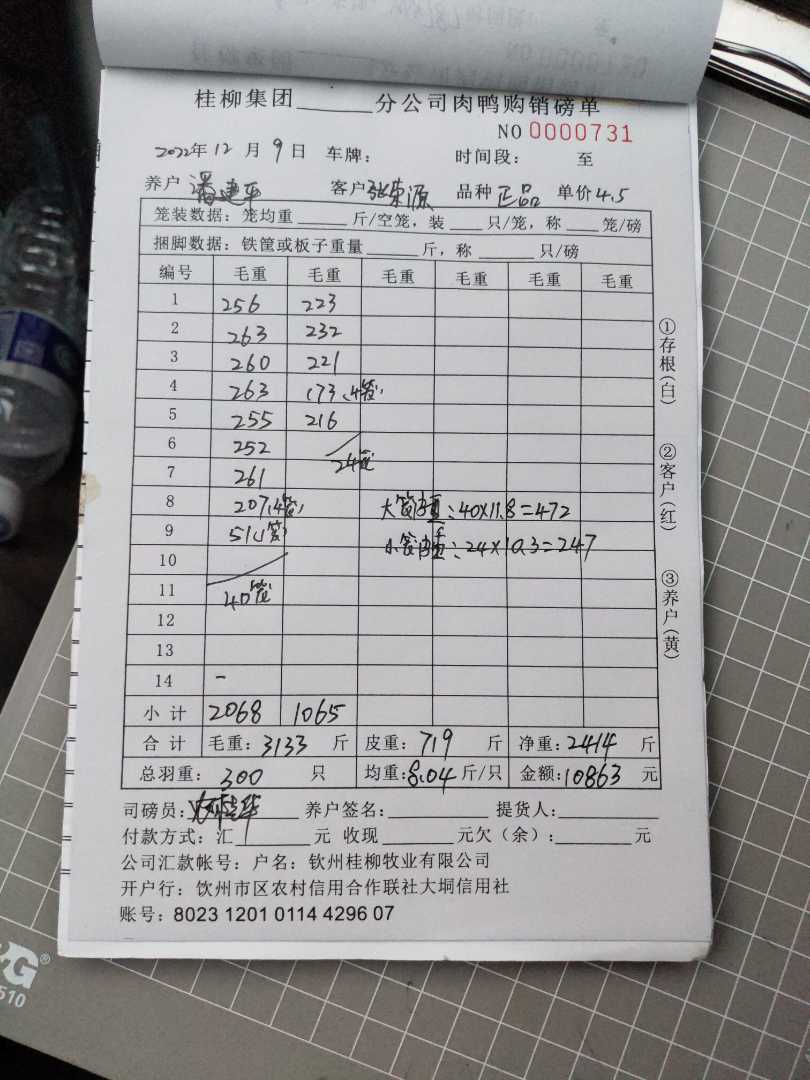 桂柳集团______分公司肉鸭购销磅单
NO 0000731
2022年12月9日 车牌： 时间段： 至
养户 潘建平 客户 张荣源 品种 正品 单价 4.5
笼装数据：笼均重 _____ 斤/空笼，装 ___ 只/笼，称 ___ 笼/磅
捆脚数据：铁筐或板子重量_____斤，称_____只/磅
编号 毛重 毛重 毛重 毛重 毛重 毛重
1 256 223
2 263 232
3 260 221
4 263 173,4笼
5 255 216
6 252
24笼
7 261
8 207,4笼 大笼重：40×11.8=472
9 51,1笼 小笼重：24×10.3=247
10
11 40笼
12
13
14 -
小计 2068 1065
合计 毛重：3133 斤 皮重：719 斤 净重：2414 斤
总羽重：300 只 均重：8.04 斤/只 金额：10863 元
司磅员：________ 养户签名：________ 提货人：________
付款方式：汇______元 收现______元欠（余）：______元
公司汇款帐号：户名：钦州桂柳牧业有限公司
开户行：饮州市区农村信用合作联社大垌信用社
账号：8023 1201 0114 4296 07
①存根（白）
②客户（红）
③养户（黄）
G®
510